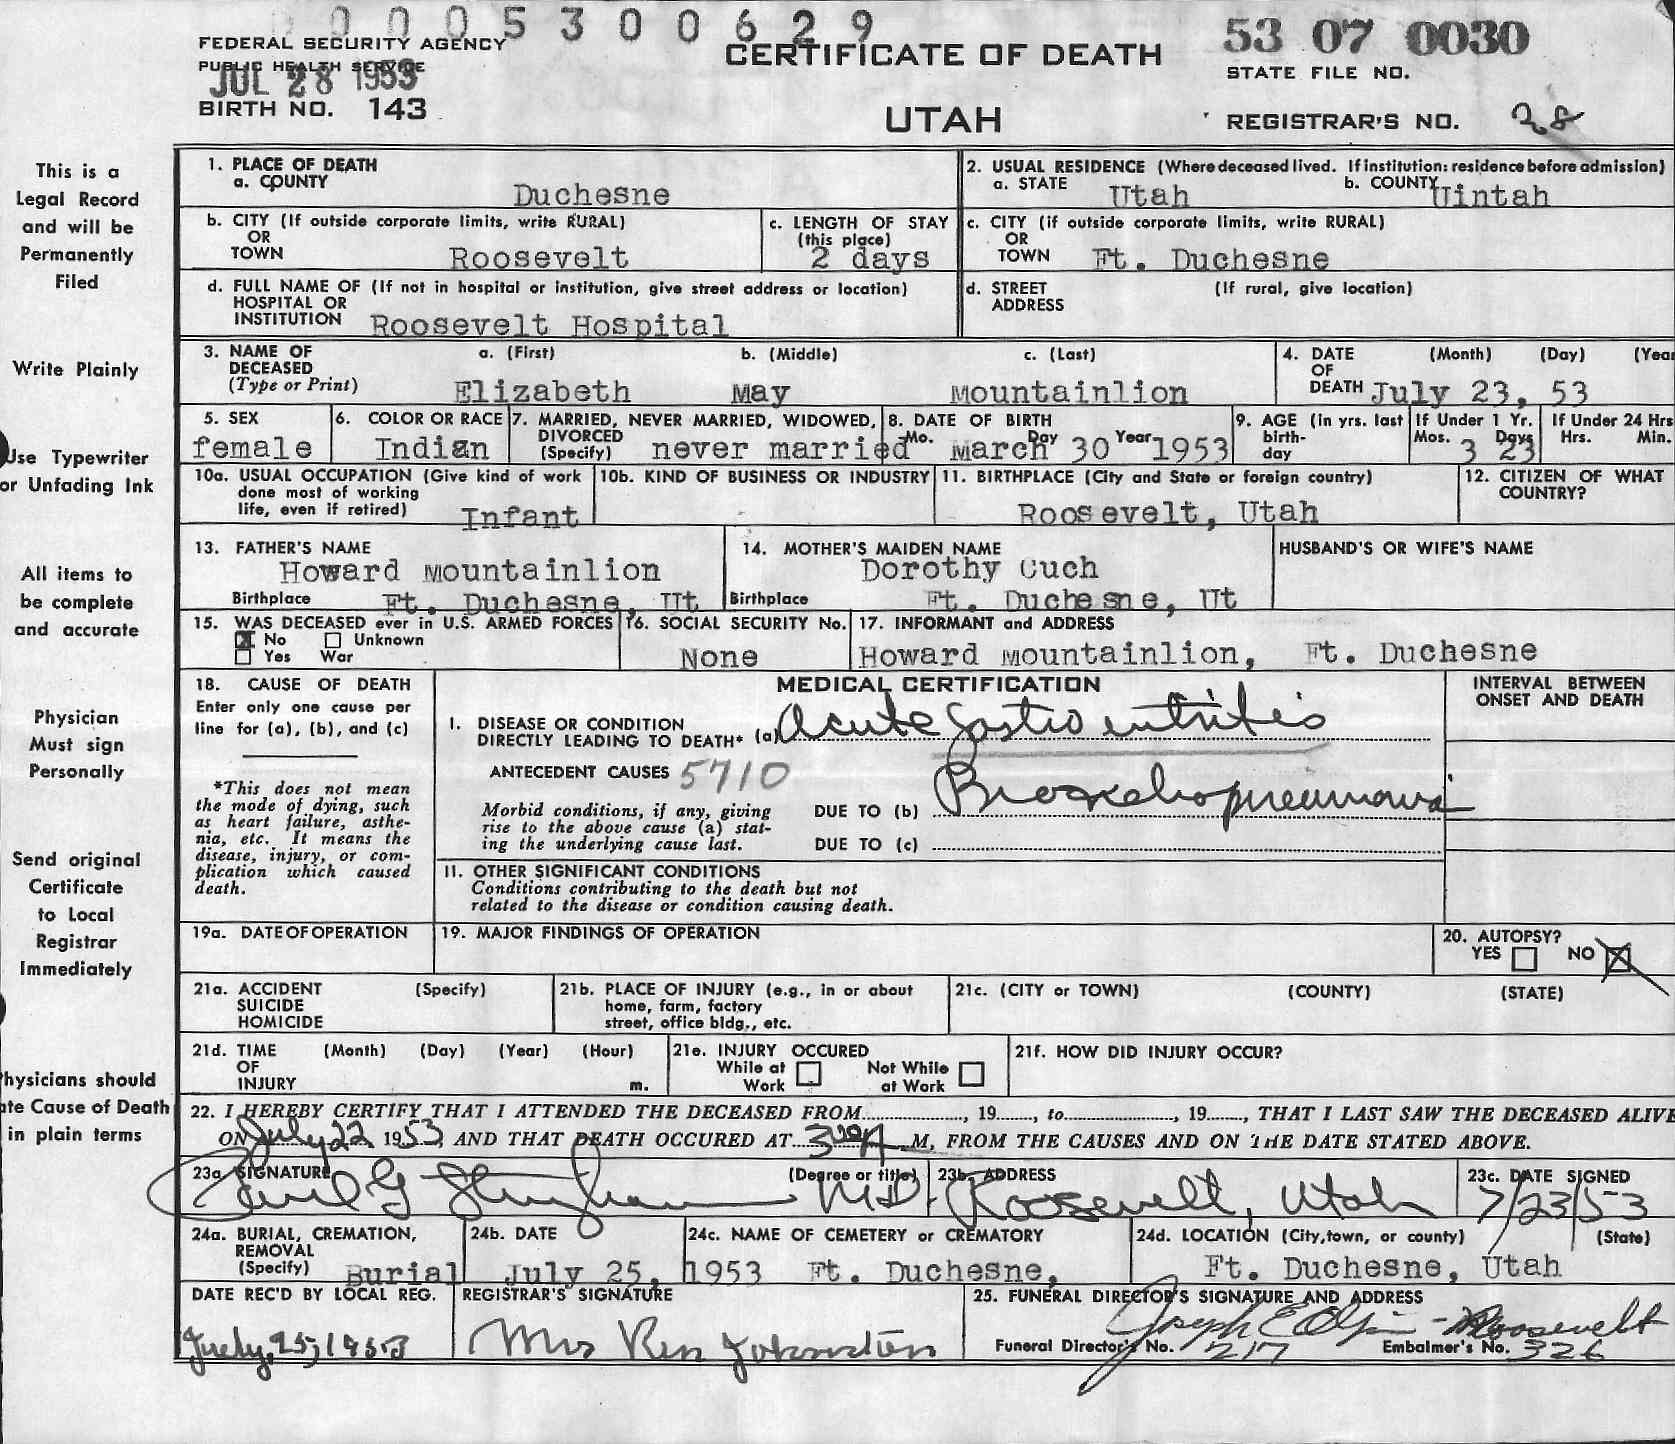 0005300629
FEDERAL SECURITY AGENCY
PUBLIC HEALTH SERVICE
JUL 28 1953
BIRTH NO. 143
CERTIFICATE OF DEATH
UTAH
53 07 0030
STATE FILE NO.
REGISTRAR'S NO. 28
This is a
Legal Record
and will be
Permanently
Filed
Write Plainly
Use Typewriter
or Unfading Ink
All items to
be complete
and accurate
Physician
Must sign
Personally
Send original
Certificate
to Local
Registrar
Immediately
hysicians should
ate Cause of Death
in plain terms
1. PLACE OF DEATH
a. COUNTY Duchesne
2. USUAL RESIDENCE (Where deceased lived. If institution: residence before admission)
a. STATE Utah b. COUNTY Uintah
b. CITY (If outside corporate limits, write RURAL)
OR
TOWN Roosevelt
c. LENGTH OF STAY
(this place)
2 days
c. CITY (if outside corporate limits, write RURAL)
OR
TOWN Ft. Duchesne
d. FULL NAME OF (If not in hospital or institution, give street address or location)
HOSPITAL OR
INSTITUTION Roosevelt Hospital
d. STREET (If rural, give location)
ADDRESS
3. NAME OF DECEASED (Type or Print)
a. (First) b. (Middle) c. (Last)
Elizabeth May Mountainlion
4. DATE OF DEATH (Month) (Day) (Year
July 23, 53
5. SEX
female
6. COLOR OR RACE
Indian
7. MARRIED, NEVER MARRIED, WIDOWED,
DIVORCED
(Specify) never married
8. DATE OF BIRTH
Mo. March Day 30 Year 1953
9. AGE (in yrs. last
birth-
day
If Under 1 Yr.
Mos. 3 Days 23
If Under 24 Hrs
Hrs. Min.
10a. USUAL OCCUPATION (Give kind of work
done most of working
life, even if retired) Infant
10b. KIND OF BUSINESS OR INDUSTRY
11. BIRTHPLACE (City and State or foreign country)
Roosevelt, Utah
12. CITIZEN OF WHAT
COUNTRY?
13. FATHER'S NAME
Howard Mountainlion
Birthplace Ft. Duchesne, Ut
14. MOTHER'S MAIDEN NAME
Dorothy Cuch
Birthplace Ft. Duchesne, Ut
HUSBAND'S OR WIFE'S NAME
15. WAS DECEASED ever in U.S. ARMED FORCES
No Unknown
Yes War
16. SOCIAL SECURITY No.
None
17. INFORMANT and ADDRESS
Howard Mountainlion, Ft. Duchesne
18. CAUSE OF DEATH
Enter only one cause per
line for (a), (b), and (c)
*This does not mean
the mode of dying, such
as heart failure, asthe-
nia, etc. It means the
disease, injury, or com-
plication which caused
death.
MEDICAL CERTIFICATION
I. DISEASE OR CONDITION
DIRECTLY LEADING TO DEATH* (a) Acute gastro enteritis
ANTECEDENT CAUSES 5710
Morbid conditions, if any, giving
rise to the above cause (a) stat-
ing the underlying cause last.
DUE TO (b) Bronchopneumonia
DUE TO (c)
11. OTHER SIGNIFICANT CONDITIONS
Conditions contributing to the death but not
related to the disease or condition causing death.
INTERVAL BETWEEN
ONSET AND DEATH
19a. DATE OF OPERATION
19. MAJOR FINDINGS OF OPERATION
20. AUTOPSY?
YES NO
21a. ACCIDENT (Specify)
SUICIDE
HOMICIDE
21b. PLACE OF INJURY (e.g., in or about
home, farm, factory
street, office bldg., etc.
21c. (CITY or TOWN) (COUNTY) (STATE)
21d. TIME (Month) (Day) (Year) (Hour)
OF
INJURY m.
21e. INJURY OCCURED
While at Work Not While at Work
21f. HOW DID INJURY OCCUR?
22. I HEREBY CERTIFY THAT I ATTENDED THE DECEASED FROM , 19 , to , 19 , THAT I LAST SAW THE DECEASED ALIVE
ON July 22 1953, AND THAT DEATH OCCURED AT 3:00 A M, FROM THE CAUSES AND ON THE DATE STATED ABOVE.
23a. SIGNATURE (Degree or title)
M.D.
23b. ADDRESS
Roosevelt, Utah
23c. DATE SIGNED
7/23/53
24a. BURIAL, CREMATION,
REMOVAL
(Specify) Burial
24b. DATE
July 25, 1953
24c. NAME OF CEMETERY or CREMATORY
Ft. Duchesne,
24d. LOCATION (City, town, or county) (State)
Ft. Duchesne, Utah
DATE REC'D BY LOCAL REG.
July 25, 1953
REGISTRAR'S SIGNATURE
Mrs Johnston
25. FUNERAL DIRECTOR'S SIGNATURE AND ADDRESS
Joseph E Olpin - Roosevelt
Funeral Director's No. 217 Embalmer's No. 326